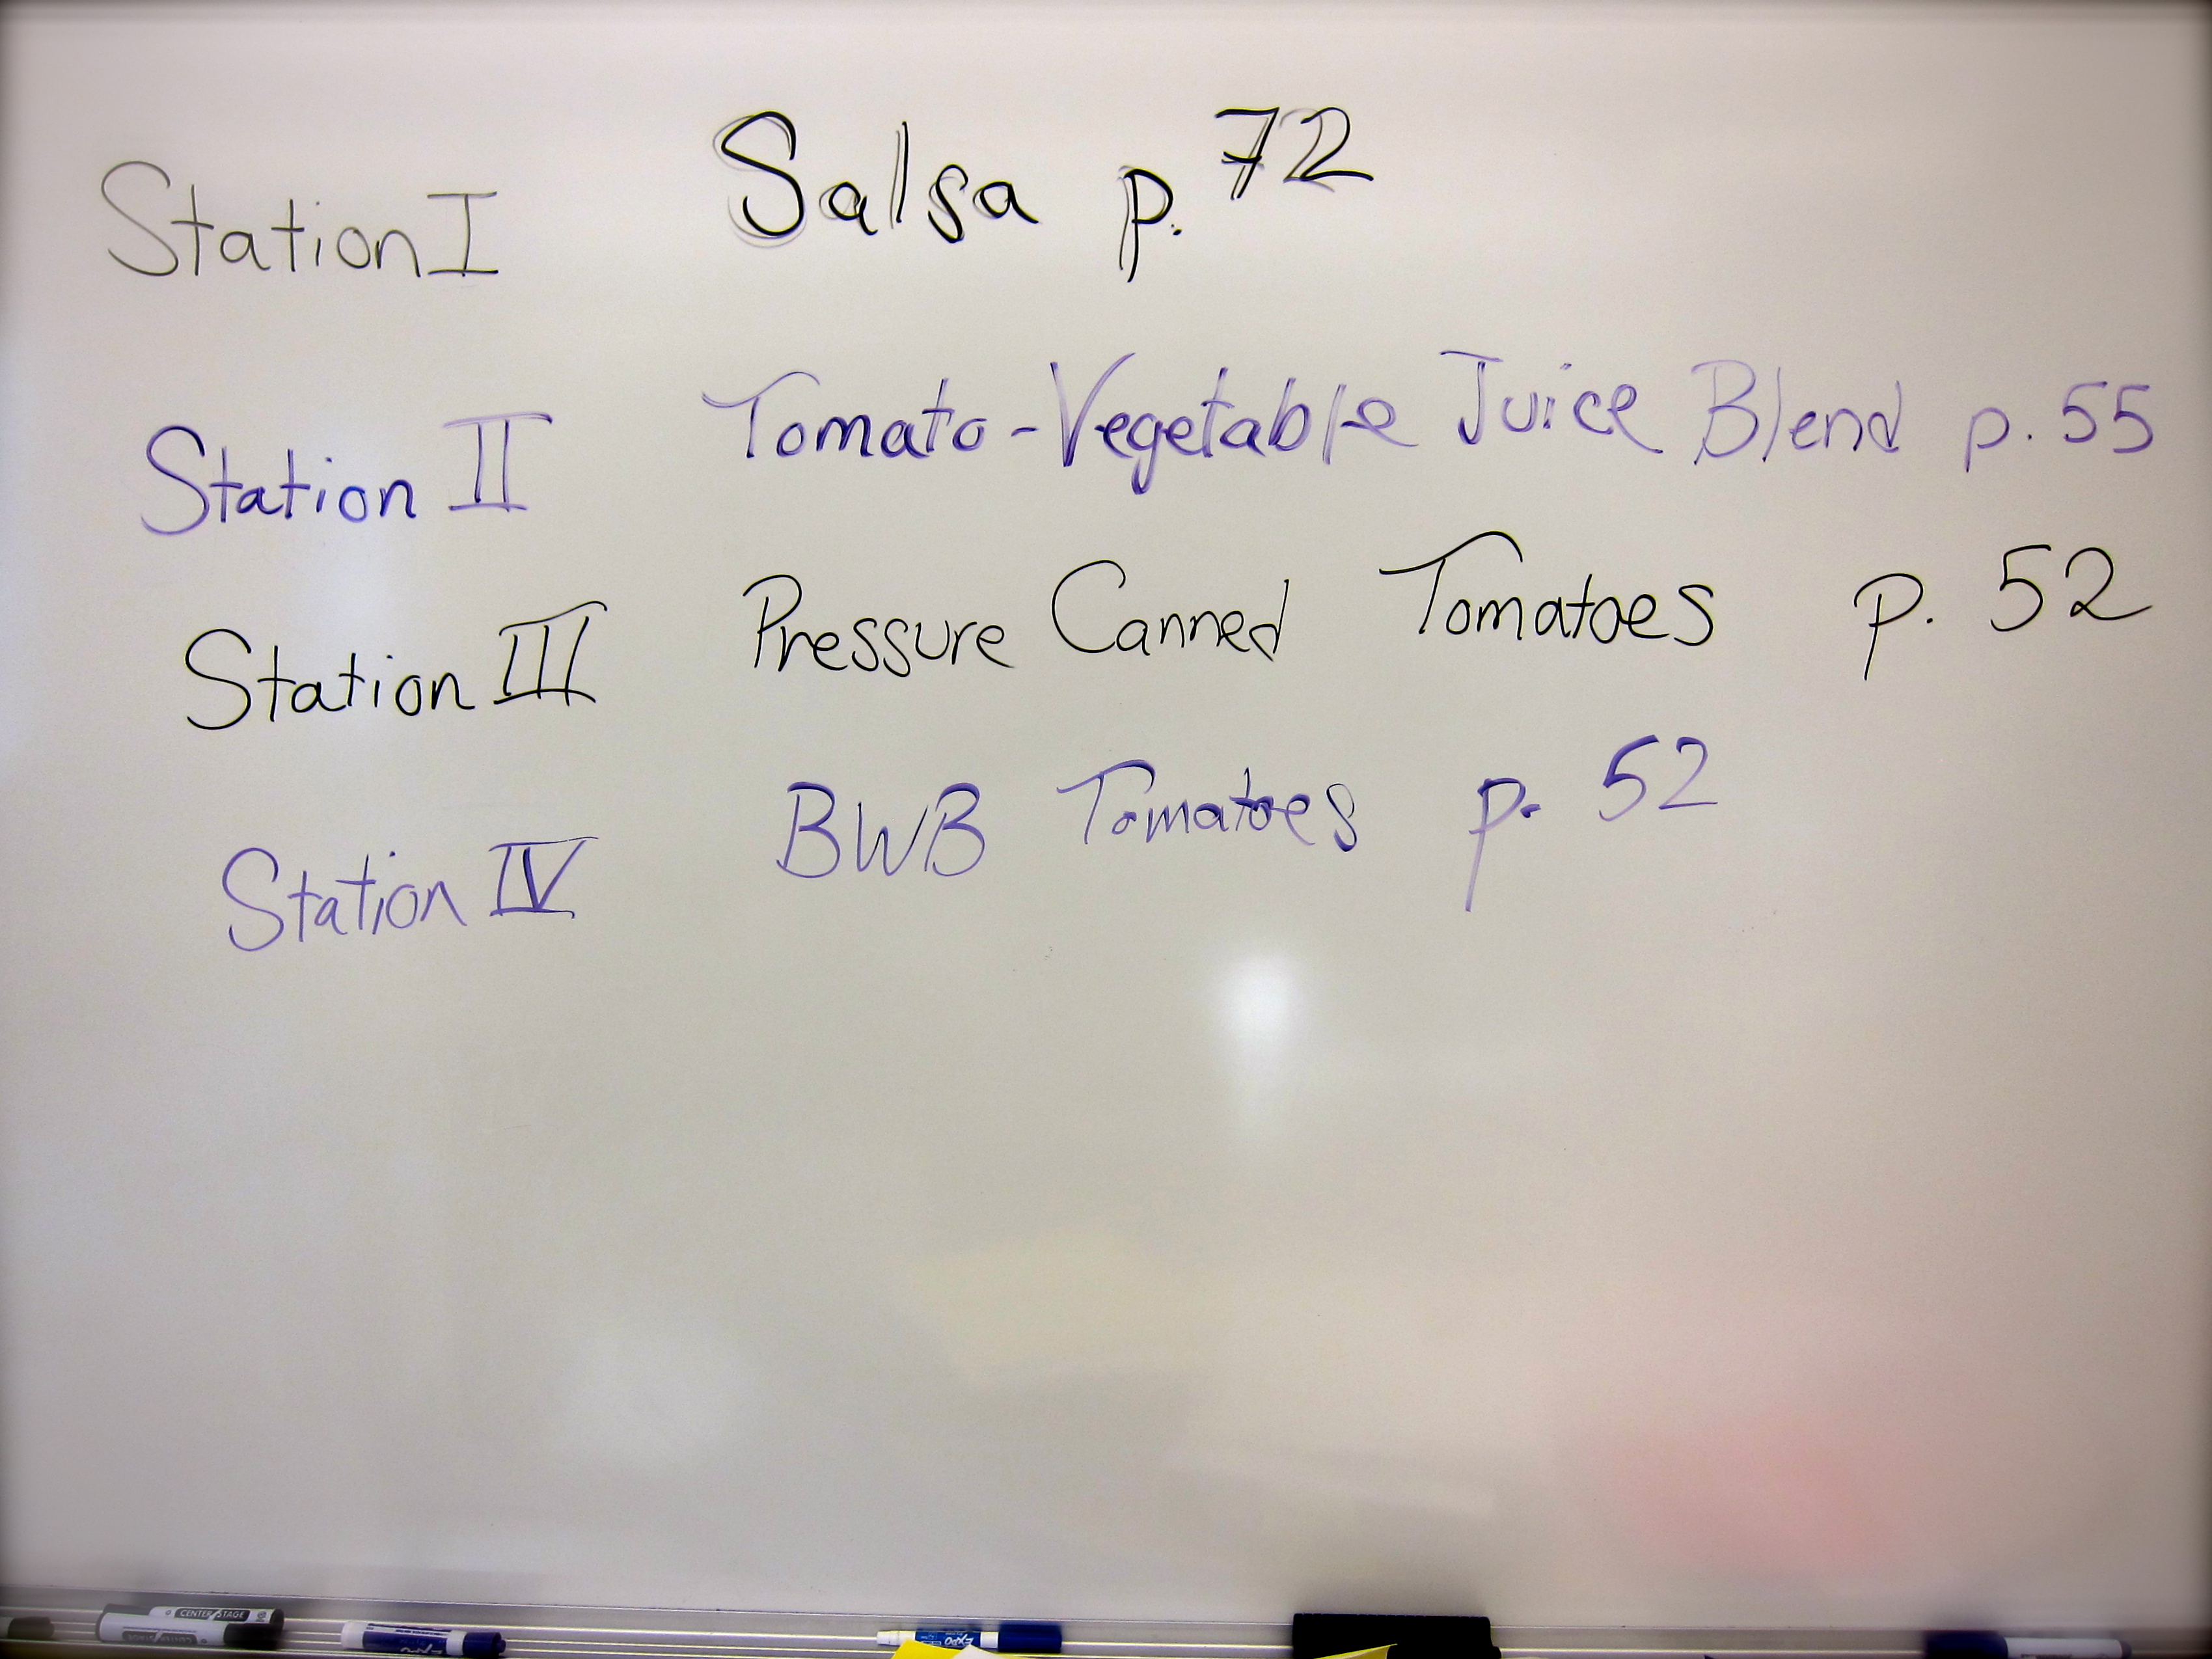 Station I Salsa p. 72
Station II Tomato-Vegetable Juice Blend p. 55
Station III Pressure Canned Tomatoes p. 52
Station IV BWB Tomatoes p. 52
CENTER STAGE
EXPO
EXPO